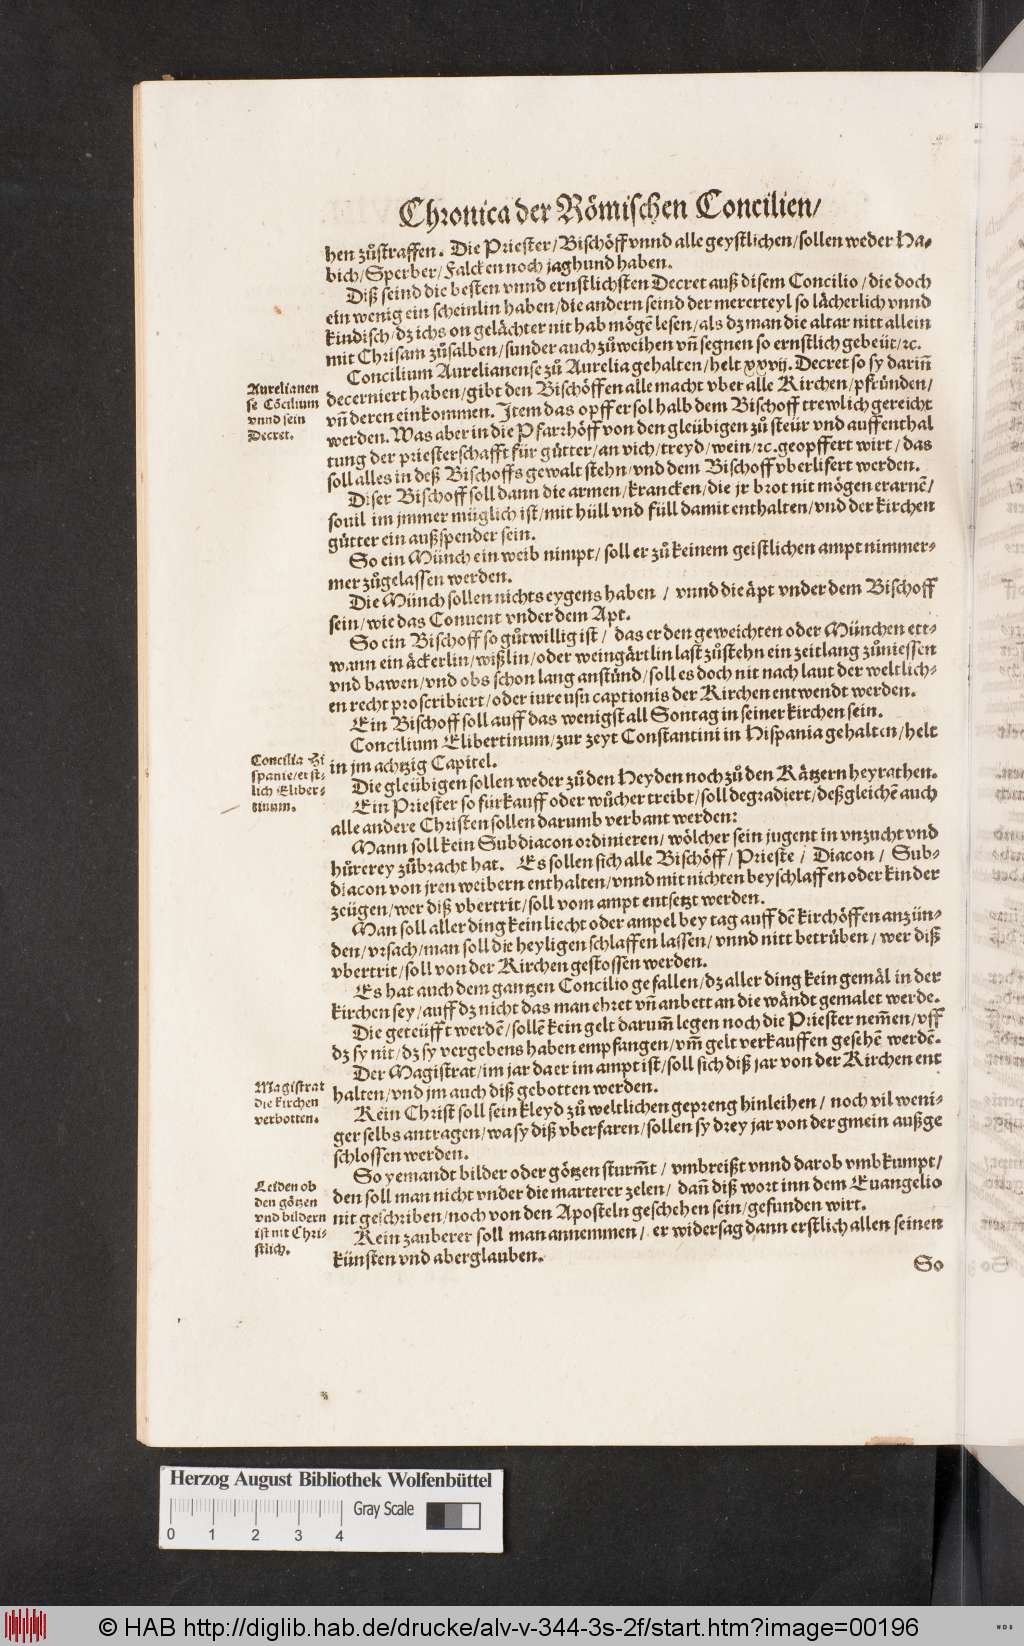 Chronica der Römischen Concilien/
hen zůstraffen. Die Priester/Bischöff vnnd alle geystlichen/sollen weder Ha-
bich/Sperber/Falcken noch jaghund haben.
Diß seind die besten vnnd ernstlichsten Decret auß disem Concilio/die doch
ein wenig ein scheinlin haben/die andern seind der mererteyl so lächerlich vnnd
kindisch/dz ichs on gelächter nit hab mögē lesen/als dz man die altar nitt allein
mit Chrisam zůsalben/sunder auch zůweihen vn̄ segnen so ernstlich gebeüt/ꝛc.
Concilium Aurelianense zů Aurelia gehalten/helt xxvij. Decret so sy darin̄
Aurelianen
se Cōcilium
vnnd sein
Decret.
decerniert haben/gibt den Bischöffen alle macht vber alle Kirchen/pfrůnden/
vn̄ deren einkommen. Item das opffer sol halb dem Bischoff trewlich gereicht
werden. Was aber in die Pfarrhöff von den gleübigen zů steür vnd auffenthal
tung der priesterschafft für gůtter/an vich/treyd/wein/ꝛc. geopffert wirt/das
soll alles in deß Bischoffs gewalt stehn/vnd dem Bischoff vberlifert werden.
Diser Bischoff soll dann die armen/krancken/die jr brot nit mögen erarnē/
souil im jmmer müglich ist/mit hüll vnd füll damit enthalten/vnd der kirchen
gůtter ein außspender sein.
So ein Münch ein weib nimpt/soll er zů keinem geistlichen ampt nimmer-
mer zůgelassen werden.
Die Münch sollen nichts eygens haben/vnnd die äpt vnder dem Bischoff
sein/wie das Conuent vnder dem Apt.
So ein Bischoff so gůtwillig ist/das er den geweichten oder München ett-
wann ein äckerlin/wißlin/oder weingärtlin last zůstehn ein zeitlang zůniessen
vnd bawen/vnd obs schon lang anstünd/soll es doch nit nach laut der weltlich-
en recht proscribiert/oder iure usu captionis der Kirchen entwendt werden.
Ein Bischoff soll auff das wenigst all Sontag in seiner kirchen sein.
Concilium Elibertinum/zur zeyt Constantini in Hispania gehalten/helt
Concilia Hi
spanie/erst-
lich Eliber-
tinum.
in jm achtzig Capitel.
Die gleübigen sollen weder zů den Heyden noch zů den Kätzern heyrathen.
Ein Priester so fürkauff oder wůcher treibt/soll degradiert/deßgleichē auch
alle andere Christen sollen darumb verbant werden:
Mann soll kein Subdiacon ordinieren/wölcher sein jugent in vnzucht vnd
hůrerey zůbracht hat. Es sollen sich alle Bischöff/Prieste/Diacon/Sub-
diacon von jren weibern enthalten/vnnd mit nichten beyschlaffen oder kinder
zeügen/wer diß vbertrit/soll vom ampt entsetzt werden.
Man soll aller ding kein liecht oder ampel bey tag auff dē kirchöffen anzün-
den/vrsach/man soll die heyligen schlaffen lassen/vnnd nitt betrüben/wer diß
vbertrit/soll von der Kirchen gestossen werden.
Es hat auch dem gantzen Concilio gefallen/dz aller ding kein gemäl in der
kirchen sey/auff dz nicht das man ehret vn̄ anbett an die wändt gemalet werde.
Die geteüfft werdē/sollē kein gelt darum̄ legen noch die Priester nem̄en/vff
dz sy nit/dz sy vergebens haben empfangen/vm̄ gelt verkauffen gesehē werdē.
Der Magistrat/im jar da er im ampt ist/soll sich diß jar von der Kirchen ent
Magistrat
die kirchen
verbotten.
halten/vnd jm auch diß gebotten werden.
Kein Christ soll sein kleyd zů weltlichen gepreng hinleihen/noch vil weni-
ger selbs antragen/wa sy diß vberfaren/sollen sy drey jar von der gmein außge
schlossen werden.
So yemandt bilder oder götzen sturm̄t/vmbreißt vnnd darob vmbkumpt/
Leiden ob
den götzen
vnd bildern
ist nit Chri-
stlich.
den soll man nicht vnder die marterer zelen/dan̄ diß wort inn dem Euangelio
nit geschriben/noch von den Aposteln geschehen sein/gefunden wirt.
Kein zauberer soll man annemmen/er widersag dann erstlich allen seinen
künsten vnd aberglauben.
So
Herzog August Bibliothek Wolfenbüttel
Gray Scale
0 1 2 3 4
© HAB http://diglib.hab.de/drucke/alv-v-344-3s-2f/start.htm?image=00196